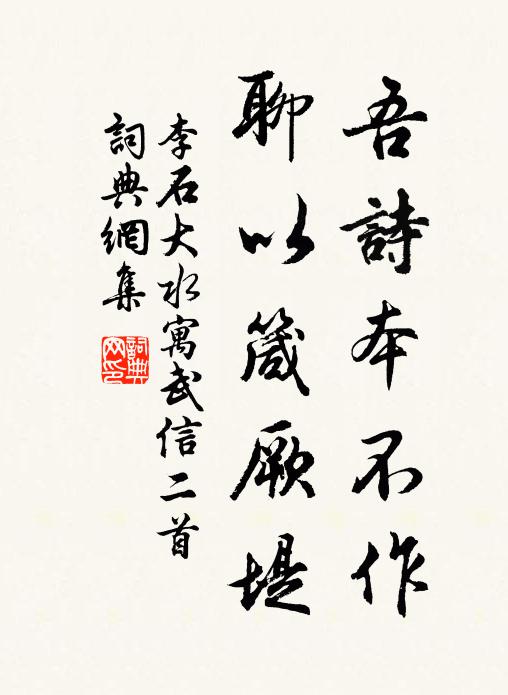 吾詩本不作
聊以箴厥堤
李石大水寓武信二首
詞典網集
詞典網印